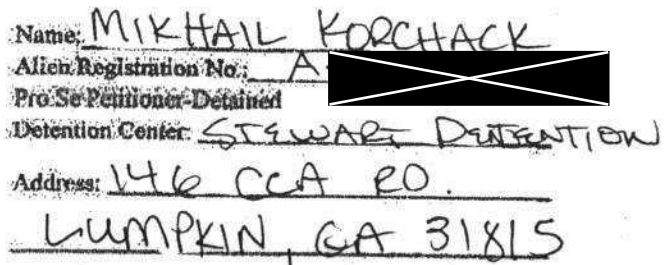 Name: MIKHAIL KORCHACK
Alien Registration No.: A
Pro Se Petitioner-Detained
Detention Center: STEWART DENTENTION
Address: 146 CCA RD.
LUMPKIN, GA 31815